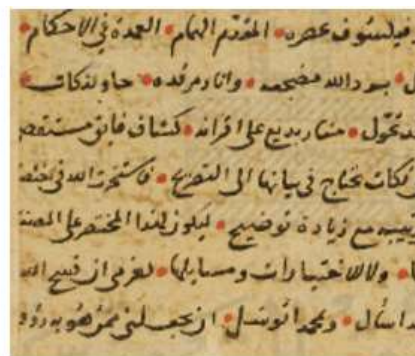 فيلسوف عصره • المقدّم الهمام • العمدة في الاحكام •
• برد الله مضجعه • وانار مرقده • حاو لنكات •
• منار بديع على اقرانه • كشاف فايق مستقصى
نكات تحتاج في بيانها الى التصريح • فاستخرت الله في
مع زيادة توضيح • ليكون هذا المختصر على
• ولالاختيارات ومسايلها • لغرمى از فسيح
اسأل • وبمحمد اتوسل • ان يجعلني ممن هو به